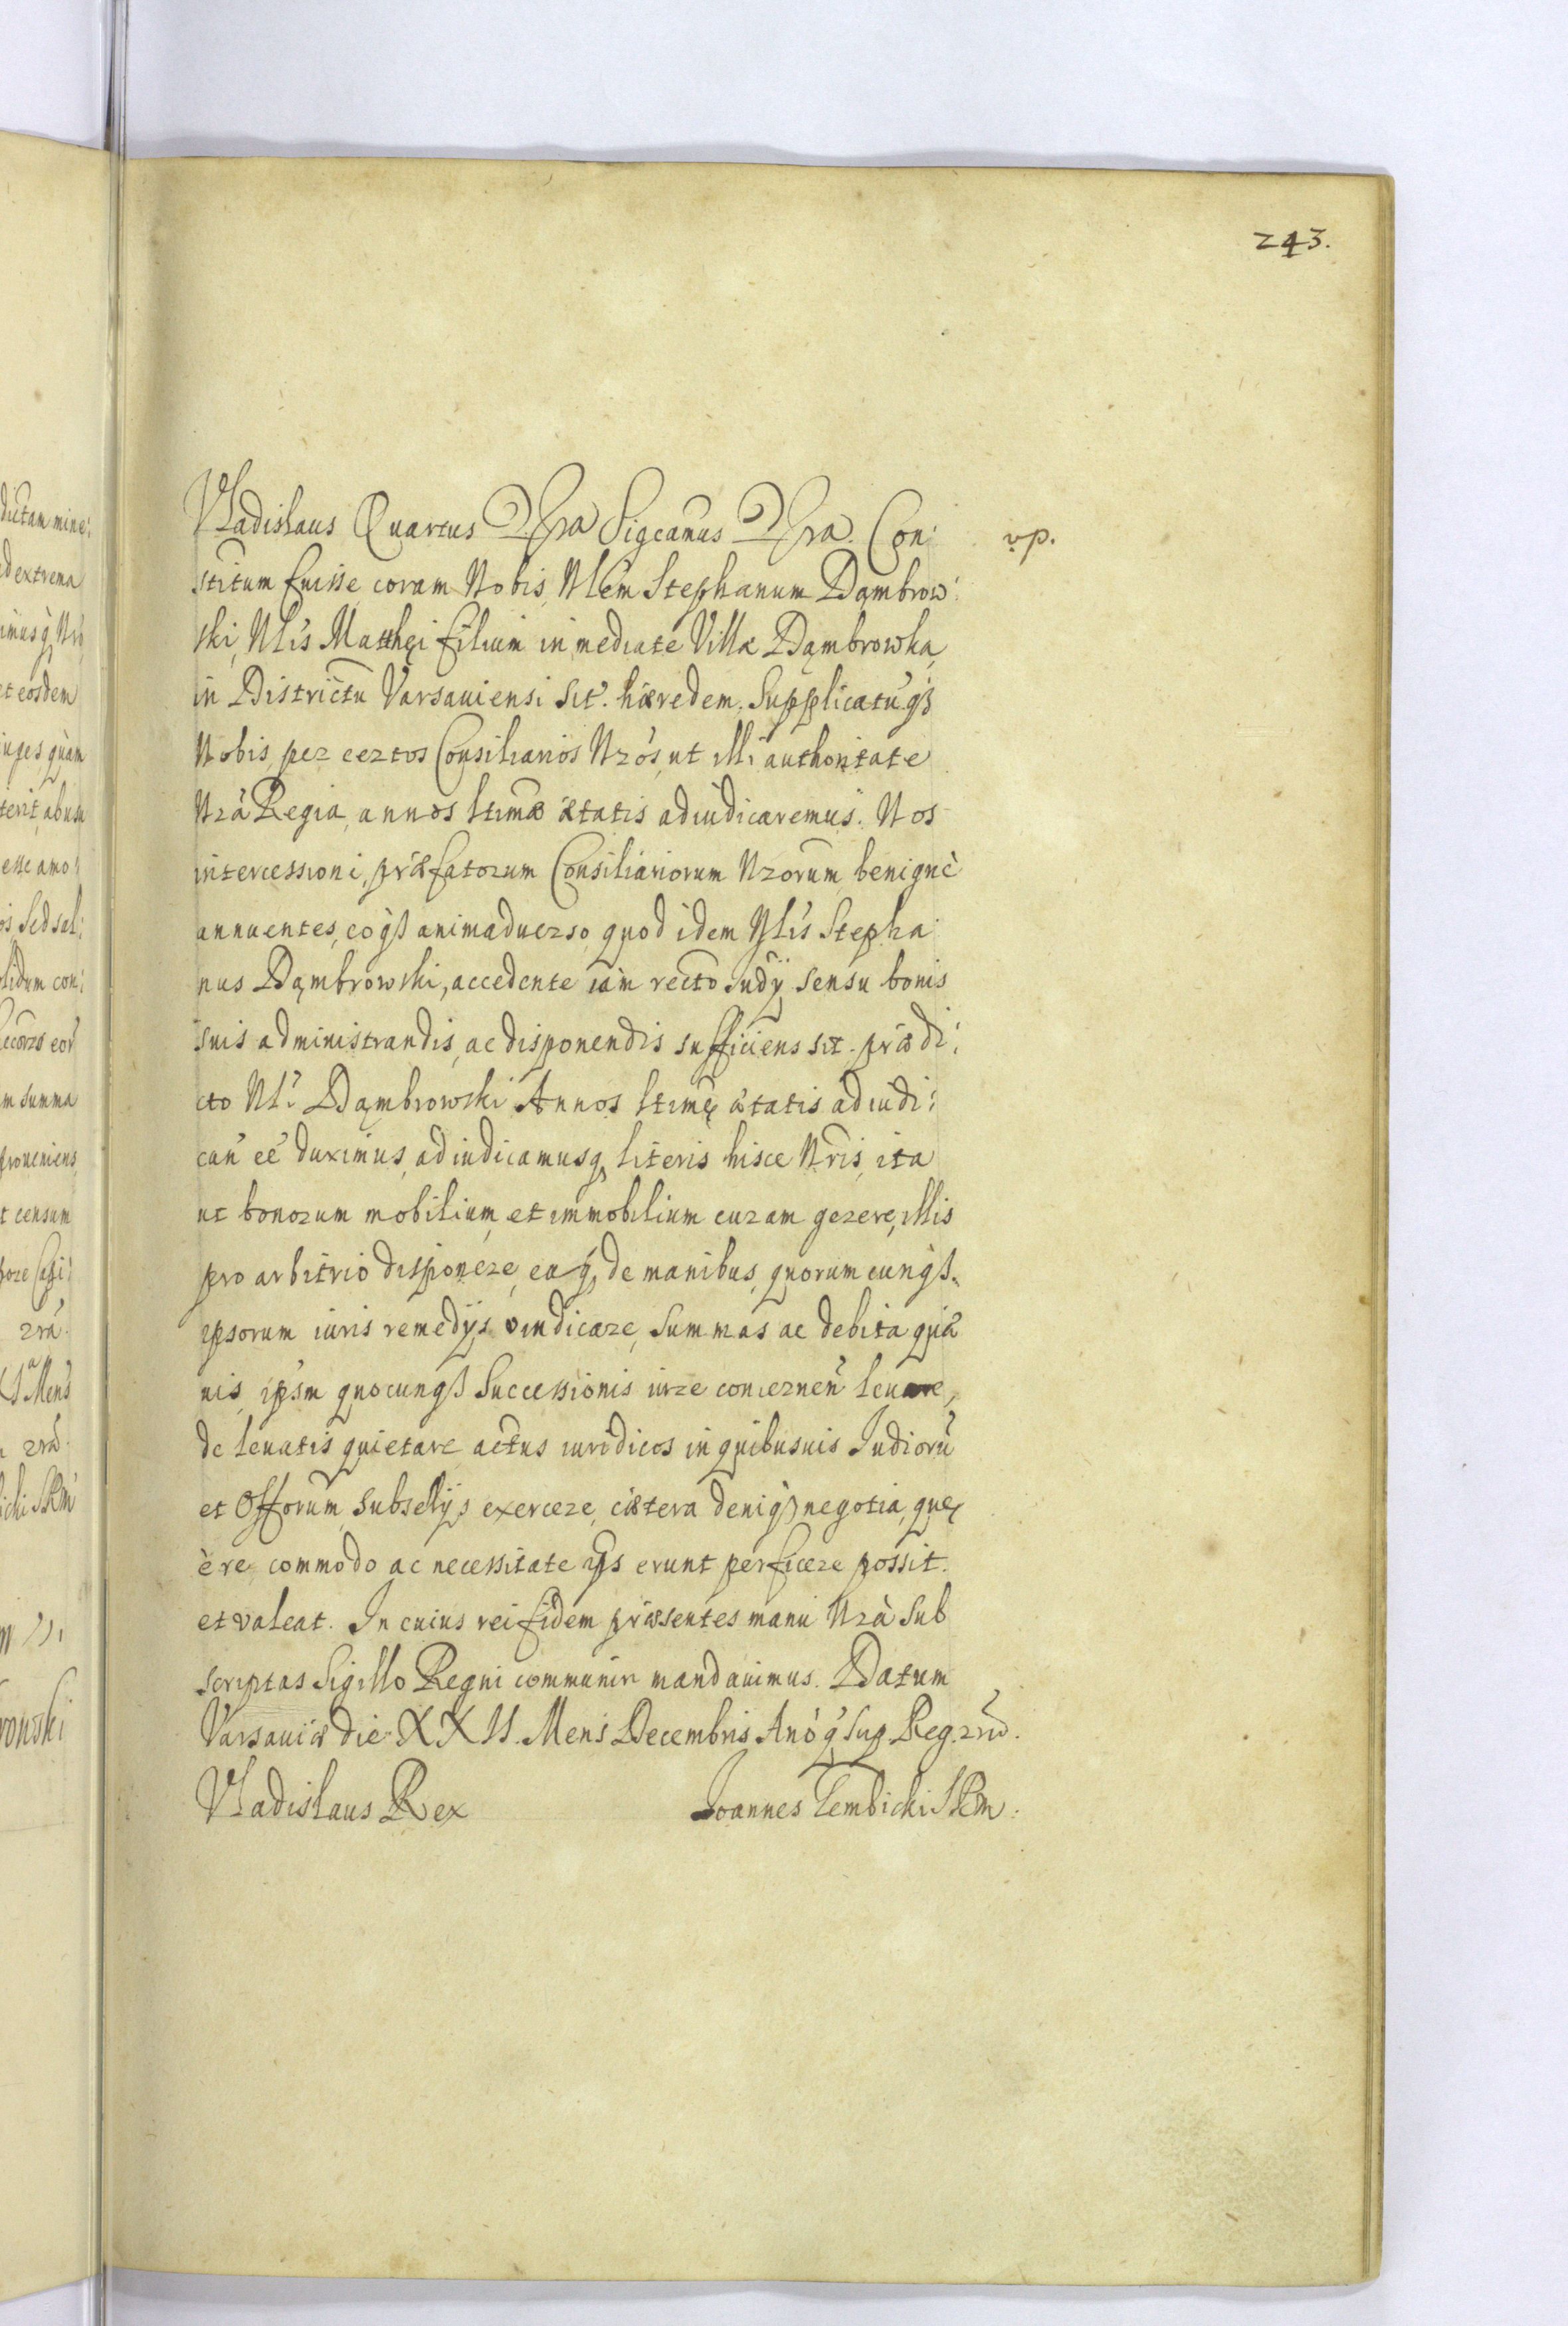 243.
Vladislaus Quartus Dgra Sigcamus Dgra. Con: vp.
stitum fuisse coram Nobis, Nlem Stephanum Dąmbrow:
ski, Nlis Matthęi filium in mediate Villæ Dąmbrowka,
in Districtu Varsauiensi sit. hæredem. Supplicatuq3
Nobis per certos Consiliarios Nros, ut illi authoritate
Nrà Regia, annos ltimæ ætatis adiudicaremus. Nos
intercessioni, præfatorum Consiliariorum Nrorum, benignè
annuentes, eoq3 animaduerso, quod idem Nlis Stepha
nus Dąmbrowski, accedente iàm recto Judij sensu bonis
suis administrandis, ac disponendis sufficiens sit. prædi:
cto Nli Dąmbrowski Annos ltimę ætatis adiudi:
can ee duximus, adiudicamusq, literis hisce Nris, ita
ut bonorum mobilium, et immobilium curam gerere, illis
pro arbitrio disponere, eaq, de manibus, quorumcunq3
ipsorum iuris remedijs vindicare, summas ac debita quæ
uis, ipsm quocunq3 Successionis iure concernen leuare,
de leuatis quietare actus iuridicos in quibusuis Judioru
et Offorum, subselijs exercere, cætera deniq3 negotia, quę
è re commodo ac necessitate ijs erunt perficere possit.
et valeat. In cuius rei fidem præsentes manu Nrà sub
scriptas Sigillo Regni communiri mandauimus. Datum
Varsauiæ die XXII. Mens Decembris Anò q sup Reg. nrò.
Vladislaus Rex Joannes Lembicki SRM.